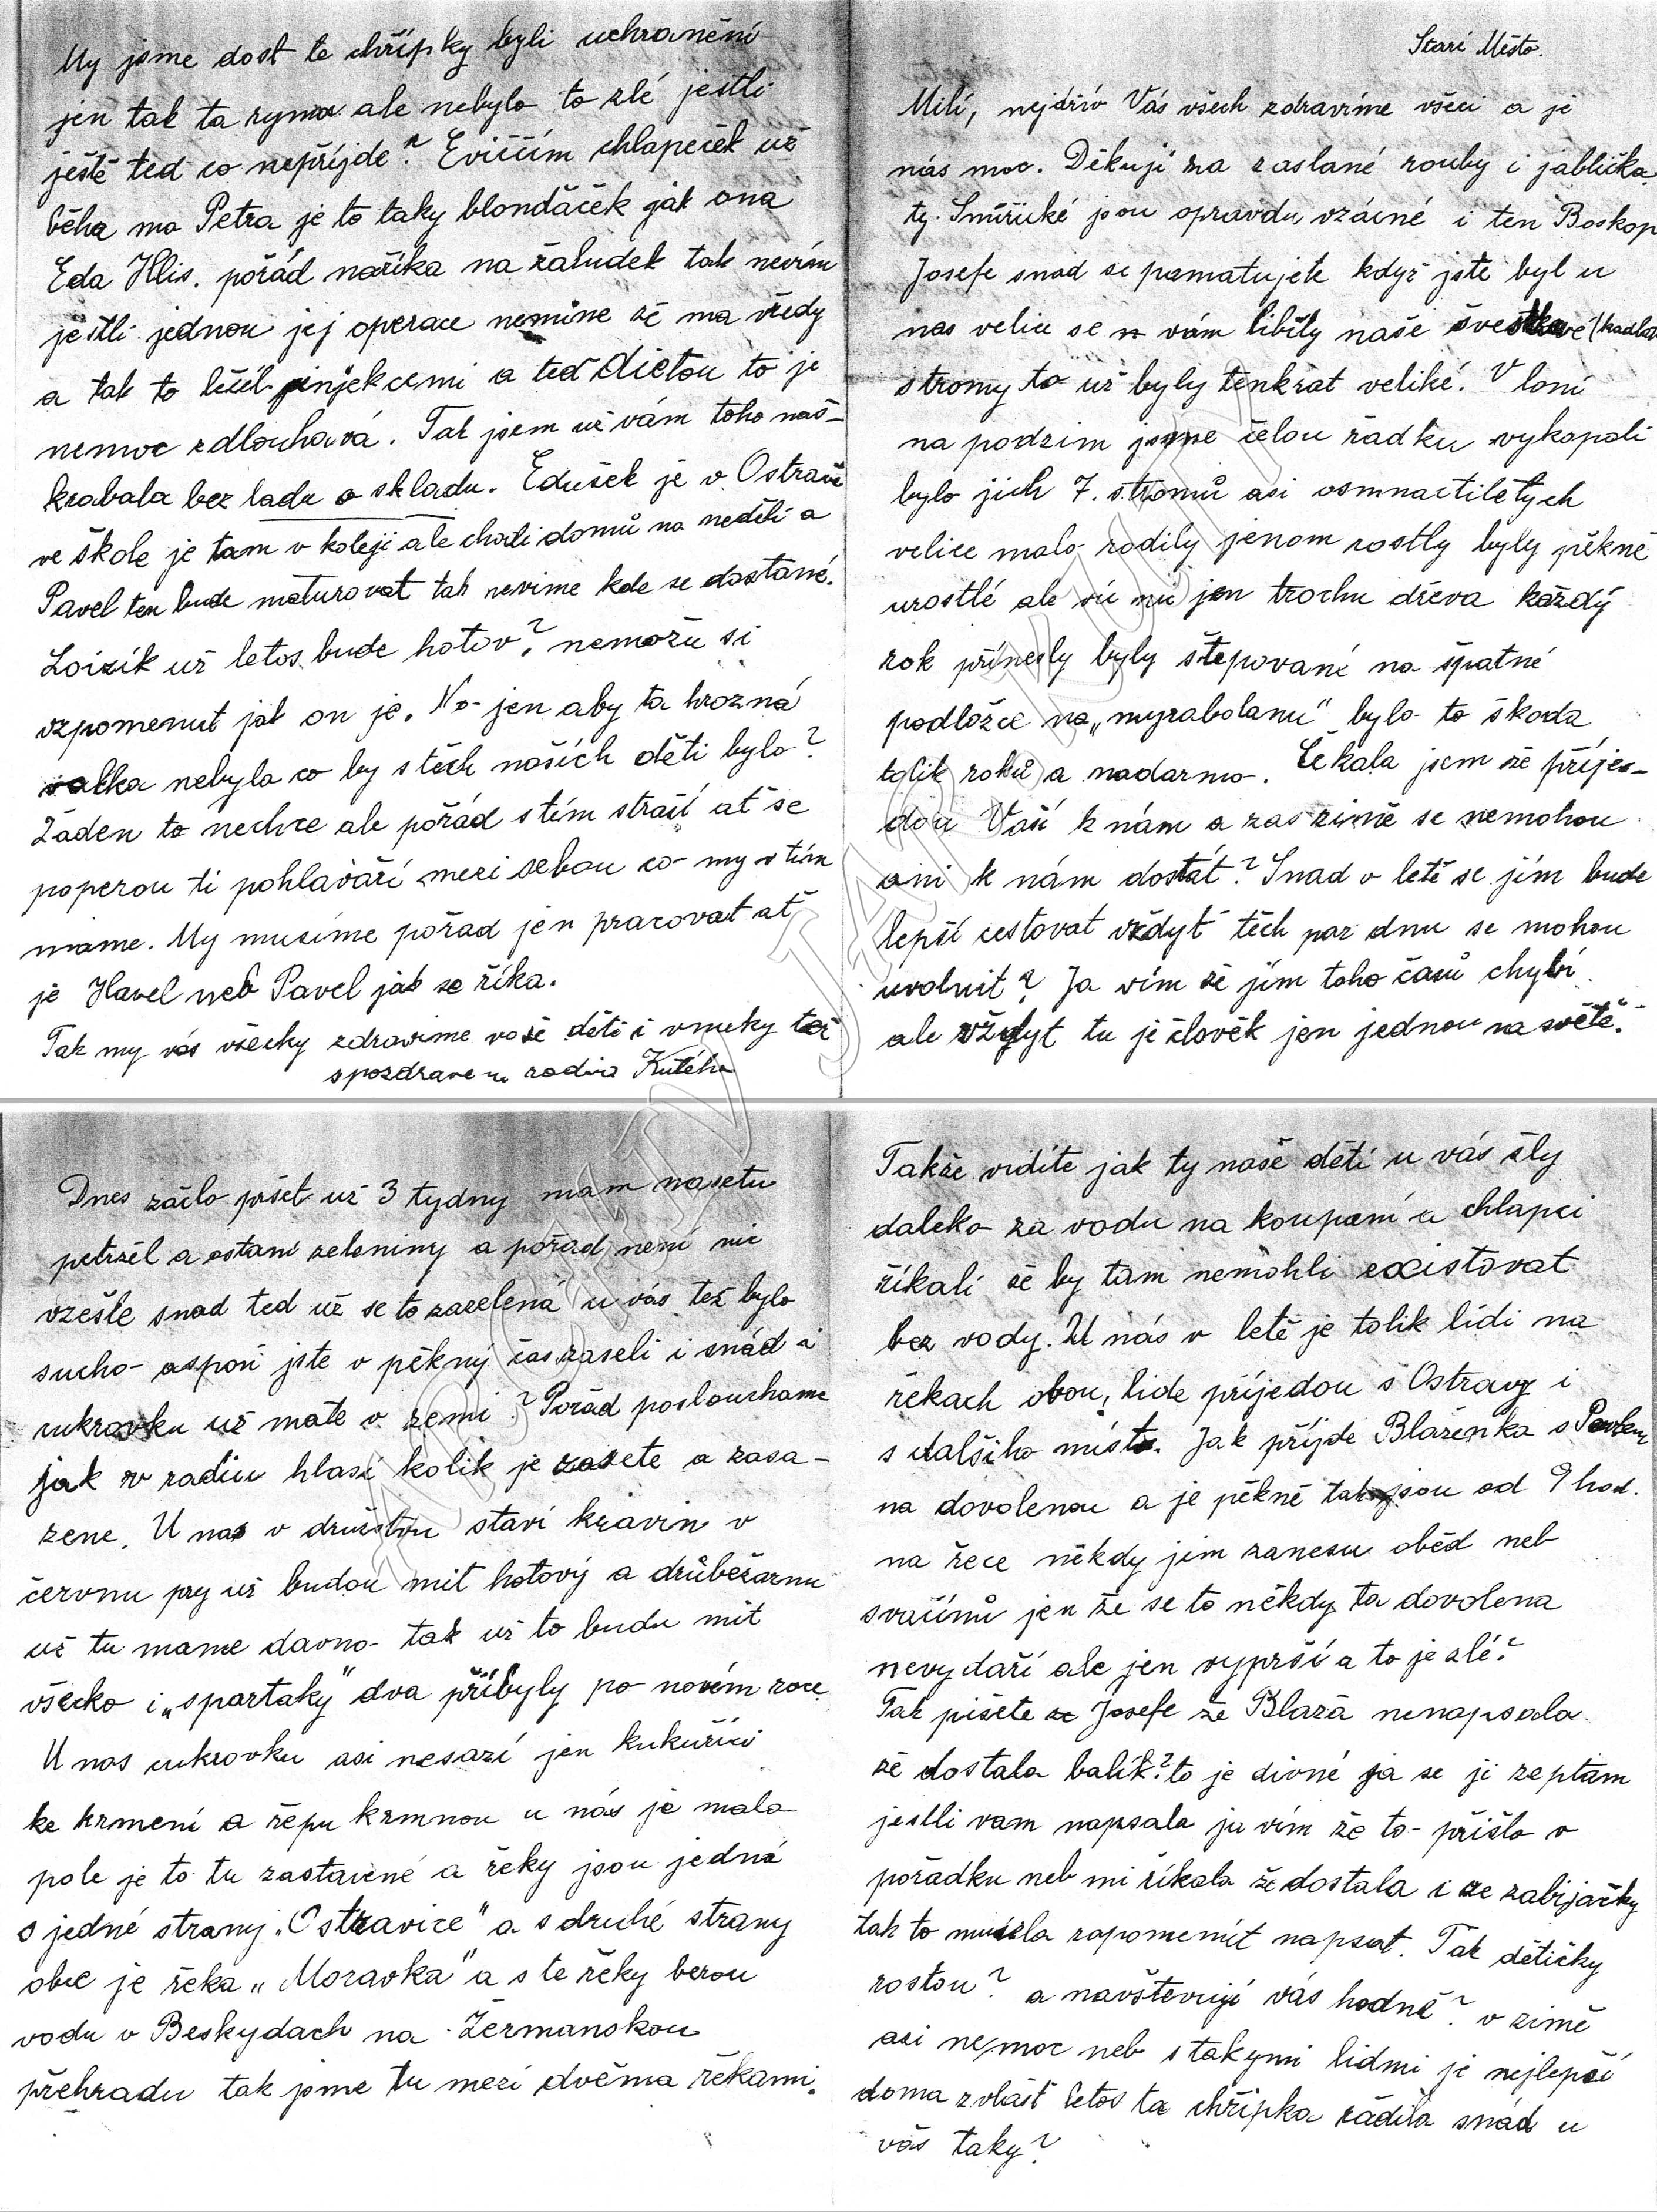 Starí Město.
Milí, nejdřív Vás všech zdravíme všeci a je
nás moc. Děkuji za zaslané rouby i jablíčka
ty. Smířické jsou opravdu vzácné i ten Boskop
Josefe snad se pamatujete když jste byl u
nas velice se vám líbily naše švestkové
stromy to už byly tenkrat veliké. V loni
na podzim jsme celou řadku vykopali
bylo jich 7. stromů asi osmnactiletych
velice malo rodily jenom rostly byly pěkně
urostlé ale jen trochu dřeva každý
rok přinesly byly štepované na špatné
podložce na „myrabolanu" bylo to škoda
tolik roků a nadarmo. Čekala jsem že příje-
dou Vaší k nám a zas zimě se nemohou
ani k nám dostát? Snad v letě se jím bude
lepší cestovat vždyť těch par dnu se mohou
uvolnit? Ja vím že jím toho časů chybí
ale vždyt tu je člověk jen jednou na světě.
Takže vidíte jak ty naše děti u vás šly
daleko za vodu na koupaní a chlapci
říkali že by tam nemohli existovat
bez vody. U nás v letě je tolik lidi na
řekach obou, lide příjedou s Ostravy i
s dalšiho místa. Jak příjde Blaženka s Pavlem
na dovolenou a je pěkně tak jsou od 9 hod.
na řece někdy jim zanesu oběd neb
svačinů jen že se to někdy ta dovolena
nevydaří ale jen vyprší a to je zlé?
Tak pišete Josefe že Blaža nenapsala
že dostala balík? to je divné ja se ji zeptam
jestli vam napsala ja vím že to přišlo v
pořadku neb mi říkala že dostala i ze zabijačky
tak to musela zapomenít napsat. Tak dětičky
rostou? a navštevují vás hodně? v zimě
asi nemoc neb s takymi lidmi je nejlepší
doma zvlášť letos ta chřipka řádila snád u
vás taky?
My jsme dost te chřípky byli uchranění
jen tak ta ryma ale nebylo to zlé jestli
ještě ted co nepříjde? Eviččím chlapeček už
běha ma Petra je to taky blondáček jak ona
Eda Illis. pořád nařika na žaludek tak nevím
jestli jednou jej operace nemine že ma vředy
a tak to léčil injekcemi a teď dietou to je
nemoc zdlouhavá. Tak jsem už vám toho naš-
krabala bez ladu a skladu. Edušek je v Ostravě
ve škole je tam v koleji ale chodi domů na neděli a
Pavel ten bude maturovat tak nevime kde se dostané.
Loizík už letos bude hotov? nemožu si
vzpomenut jak on je. No jen aby ta hrozná
valka nebyla co by s těch našich děti bylo?
Žáden to nechce ale pořád s tím straší ať se
poperou ti pohlaváří mezi sebou co my s tím
mame. My musíme pořad jen pracovat ať
je Havel neb Pavel jak se říka.
Tak my vás všecky zdravime vaše děti i vnuky též
s pozdravem rodina
Dnes začlo pršet už 3 tydny mam nasetu
petržel a ostani zeleniny a pořad není nic
vzešle snad ted už se to zazelená u vás tež bylo
sucho aspoň jste v pěkný čas zaseli i snád i
cukrovku už mate v zemi? Pořad poslouchame
jak v radiu hlasí kolik je zasete a zasa-
zene. U nas v družstvu staví kravin v
červnu pry už budou mit hotový a drůbežarnu
už tu mame davno tak už to budu mit
všecko i „spartaky" dva přibyly po novém roce.
U nas cukrovku asi nesazí jen kukuřici
ke krmení a řepu krmnou u nás je malo
pole je to tu zastavené a řeky jsou jedná
s jedné strany „Ostravice" a s druhé strany
obce je řeka „Moravka" a s te řeky berou
vodu v Beskydach na Žermanskou
přehradu tak jsme tu mezi dvěma řekami.
JAROŠŮV ARCHIV